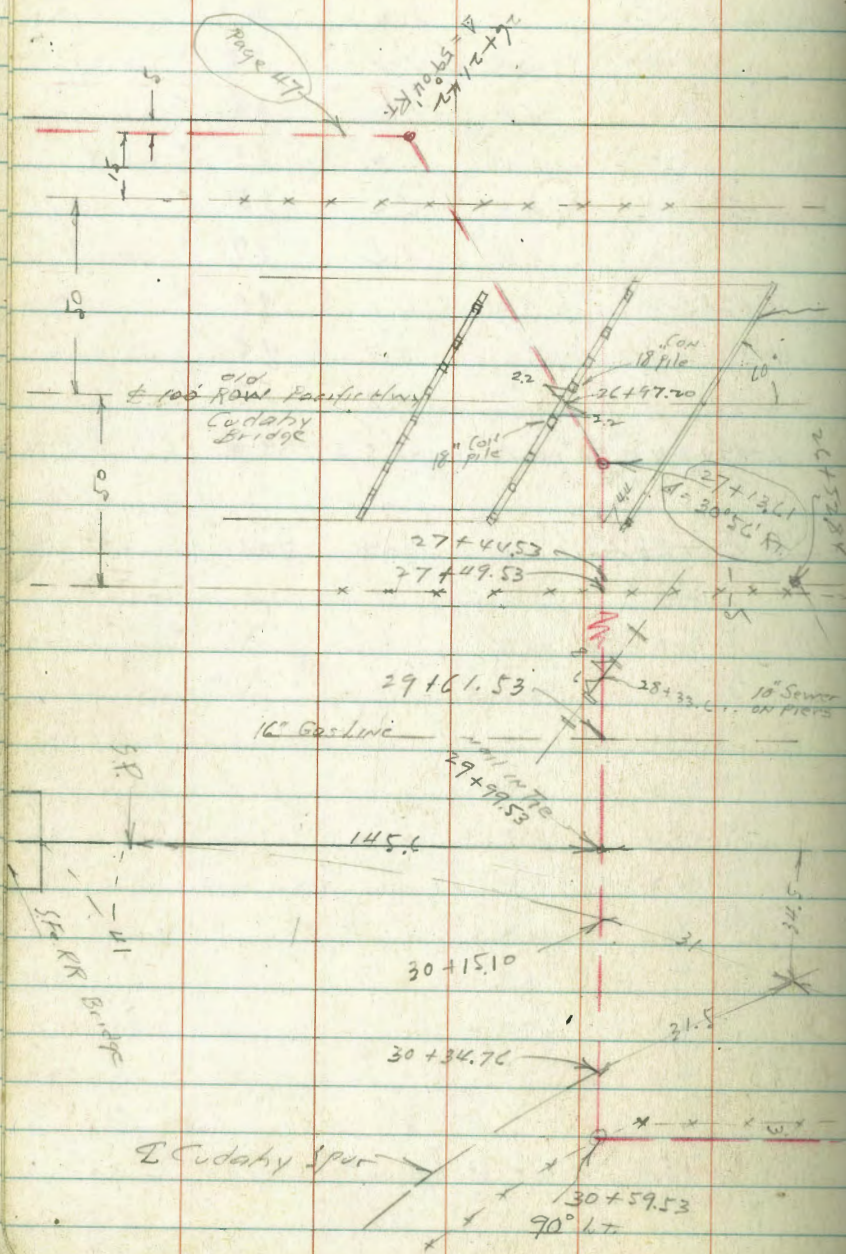 Page 47
26+21.42
Δ = 59°04' RT.
5
15
50
old
℄ 100' ROW Pacific Hwy
Cudahy
Bridge
50
2.2
18" Con
Pile
26+97.20
2.2
18" Con
Pile
60°
27+13.61
Δ = 30°56' Rt.
44
26+52.84
27+44.53
27+49.53
5
8
6
29+61.53
28+33.6
10" Sewer
on Piers
16" Gas Line
Nail in Tie
29+99.53
S.P.
145.6
41
S.Fe RR Bridge
30+15.10
31
31.5
30+34.76
℄ Cudahy Spur
3
30+59.53
90° LT.